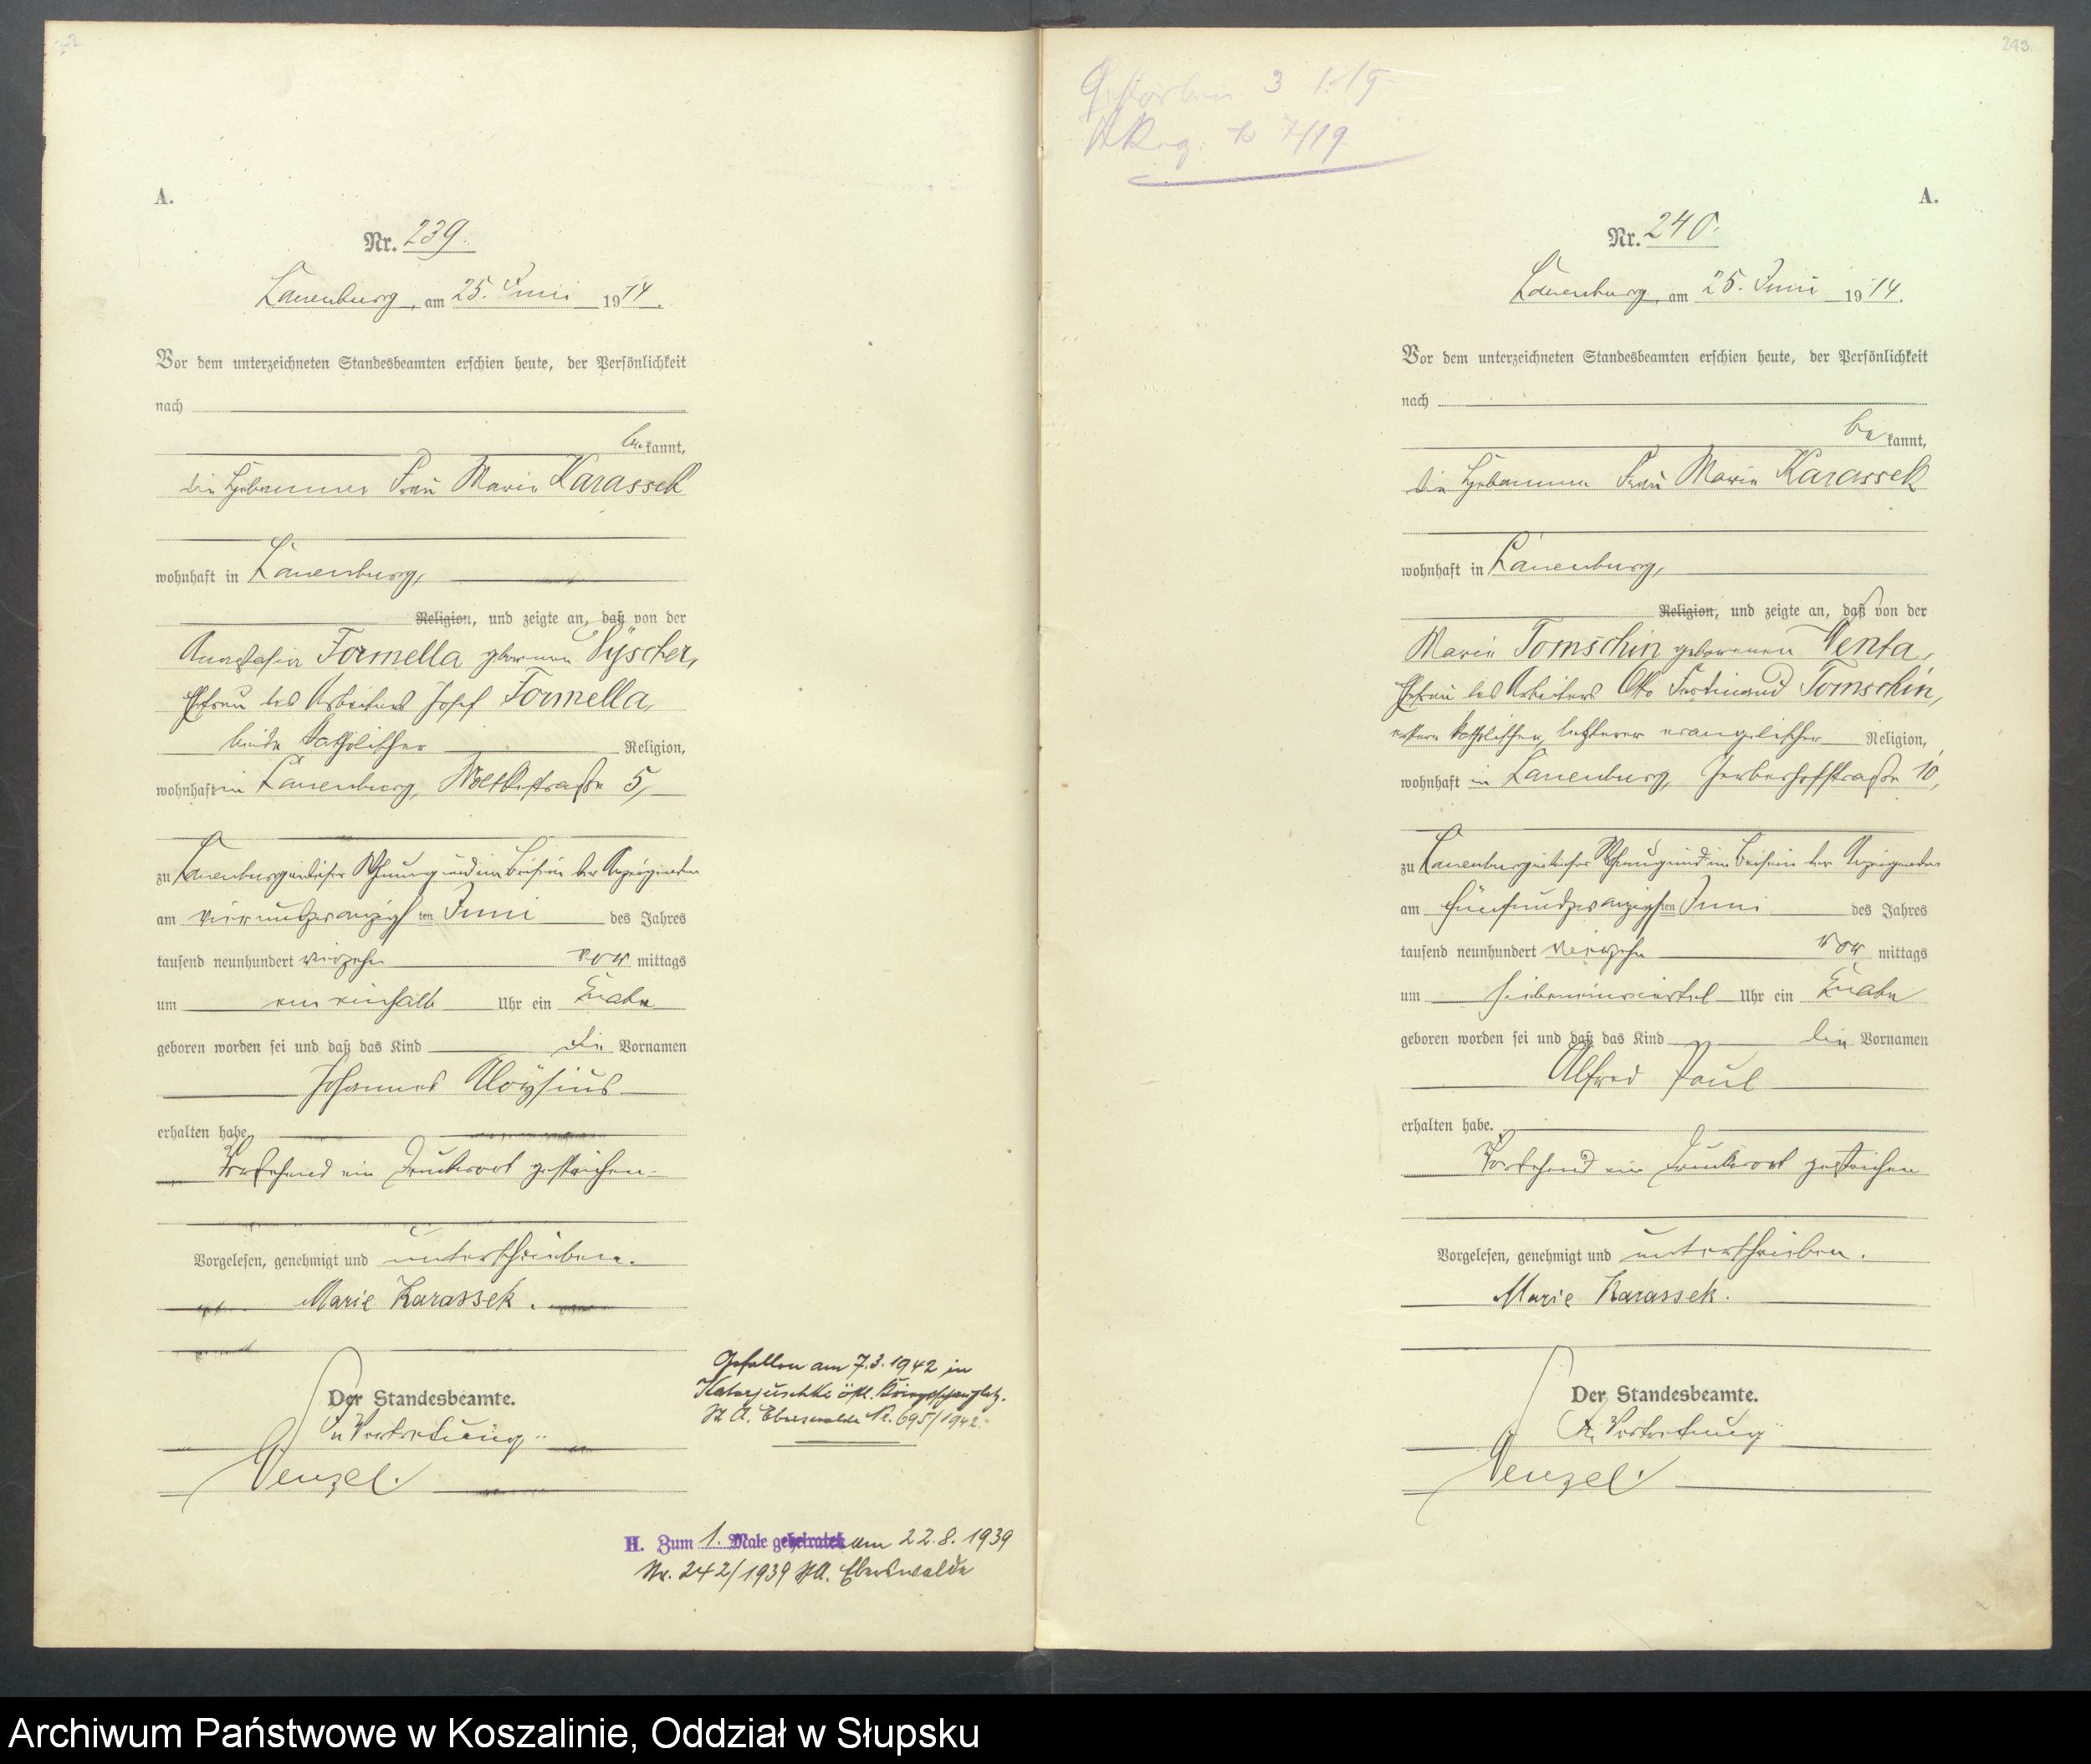 A.
Nr. 239.
Lauenburg, am 25. Juni 1914.
Vor dem unterzeichneten Standesbeamten erschien heute, der Persönlichkeit
nach
bekannt,
die Hebamme Frau Marie Karassek
wohnhaft in Lauenburg,
Religion, und zeigte an, daß von der
Anastasia Formella geborenen Vÿscher,
Ehefrau des Arbeiters Josef Formella,
beide katholischer Religion,
wohnhaft in Lauenburg, Moltkestraße 5,
zu Lauenburg in dieser Wohnung und im Beisein der Anzeigenden
am vierundzwanzigsten Juni des Jahres
tausend neunhundert vierzehn vor mittags
um ein einhalb Uhr ein Knabe
geboren worden sei und daß das Kind die Vornamen
Johannes Aloÿsius
erhalten habe.
Vorstehend ein Druckwort gestrichen.
Vorgelesen, genehmigt und unterschrieben.
Marie Karassek.
Der Standesbeamte.
In Vertretung
Wenzel.
Gefallen am 7.3.1942 in
östl.
St. A. Eberswalde Nr. 695/1942.
H. Zum 1. Male geheiratet am 22.8.1939
Nr. 242/1939 StA. Eberswalde
243.
Gestorben 3
7/19
A.
Nr. 240.
Lauenburg, am 25. Juni 1914.
Vor dem unterzeichneten Standesbeamten erschien heute, der Persönlichkeit
nach
bekannt,
die Hebamme Frau Marie Karassek
wohnhaft in Lauenburg,
Religion, und zeigte an, daß von der
Marie Tomschin geborenen Wenta,
Ehefrau des Arbeiters Otto Ferdinand Tomschin,
erstere katholischer, letzterer evangelischer Religion,
wohnhaft in Lauenburg, Gerberhofstraße 10,
zu Lauenburg in dieser Wohnung und im Beisein der Anzeigenden
am fünfundzwanzigsten Juni des Jahres
tausend neunhundert vierzehn vor mittags
um sieben einviertel Uhr ein Knabe
geboren worden sei und daß das Kind die Vornamen
Alfred Paul
erhalten habe.
Vorstehend ein Druckwort gestrichen
Vorgelesen, genehmigt und unterschrieben.
Marie Karassek.
Der Standesbeamte.
In Vertretung
Wenzel.
Archiwum Państwowe w Koszalinie, Oddział w Słupsku